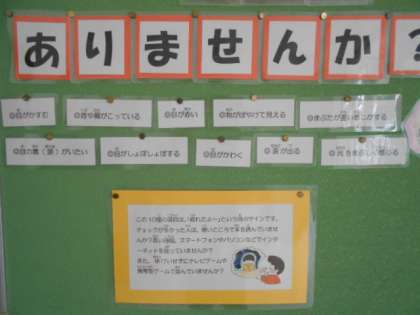 ありませんか？
◎目がかすむ
◎首や肩がこっている
◎目があかい
◎物がぼやけて見える
◎まぶたが重いかんじがする
◎目の奥（頭）がいたい
◎目がしょぼしょぼする
◎目がかわく
◎涙が出る
◎光をまぶしく感じる
この10個の項目は、「疲れたよ〜」という目のサインです。
チェックが多かった人は、暗いところで本を読んでいませんか？長い時間、スマートフォンやパソコンなどでインターネットを使っていませんか？
また、休けいせずにテレビゲームや
携帯型ゲームで遊んでいませんか？